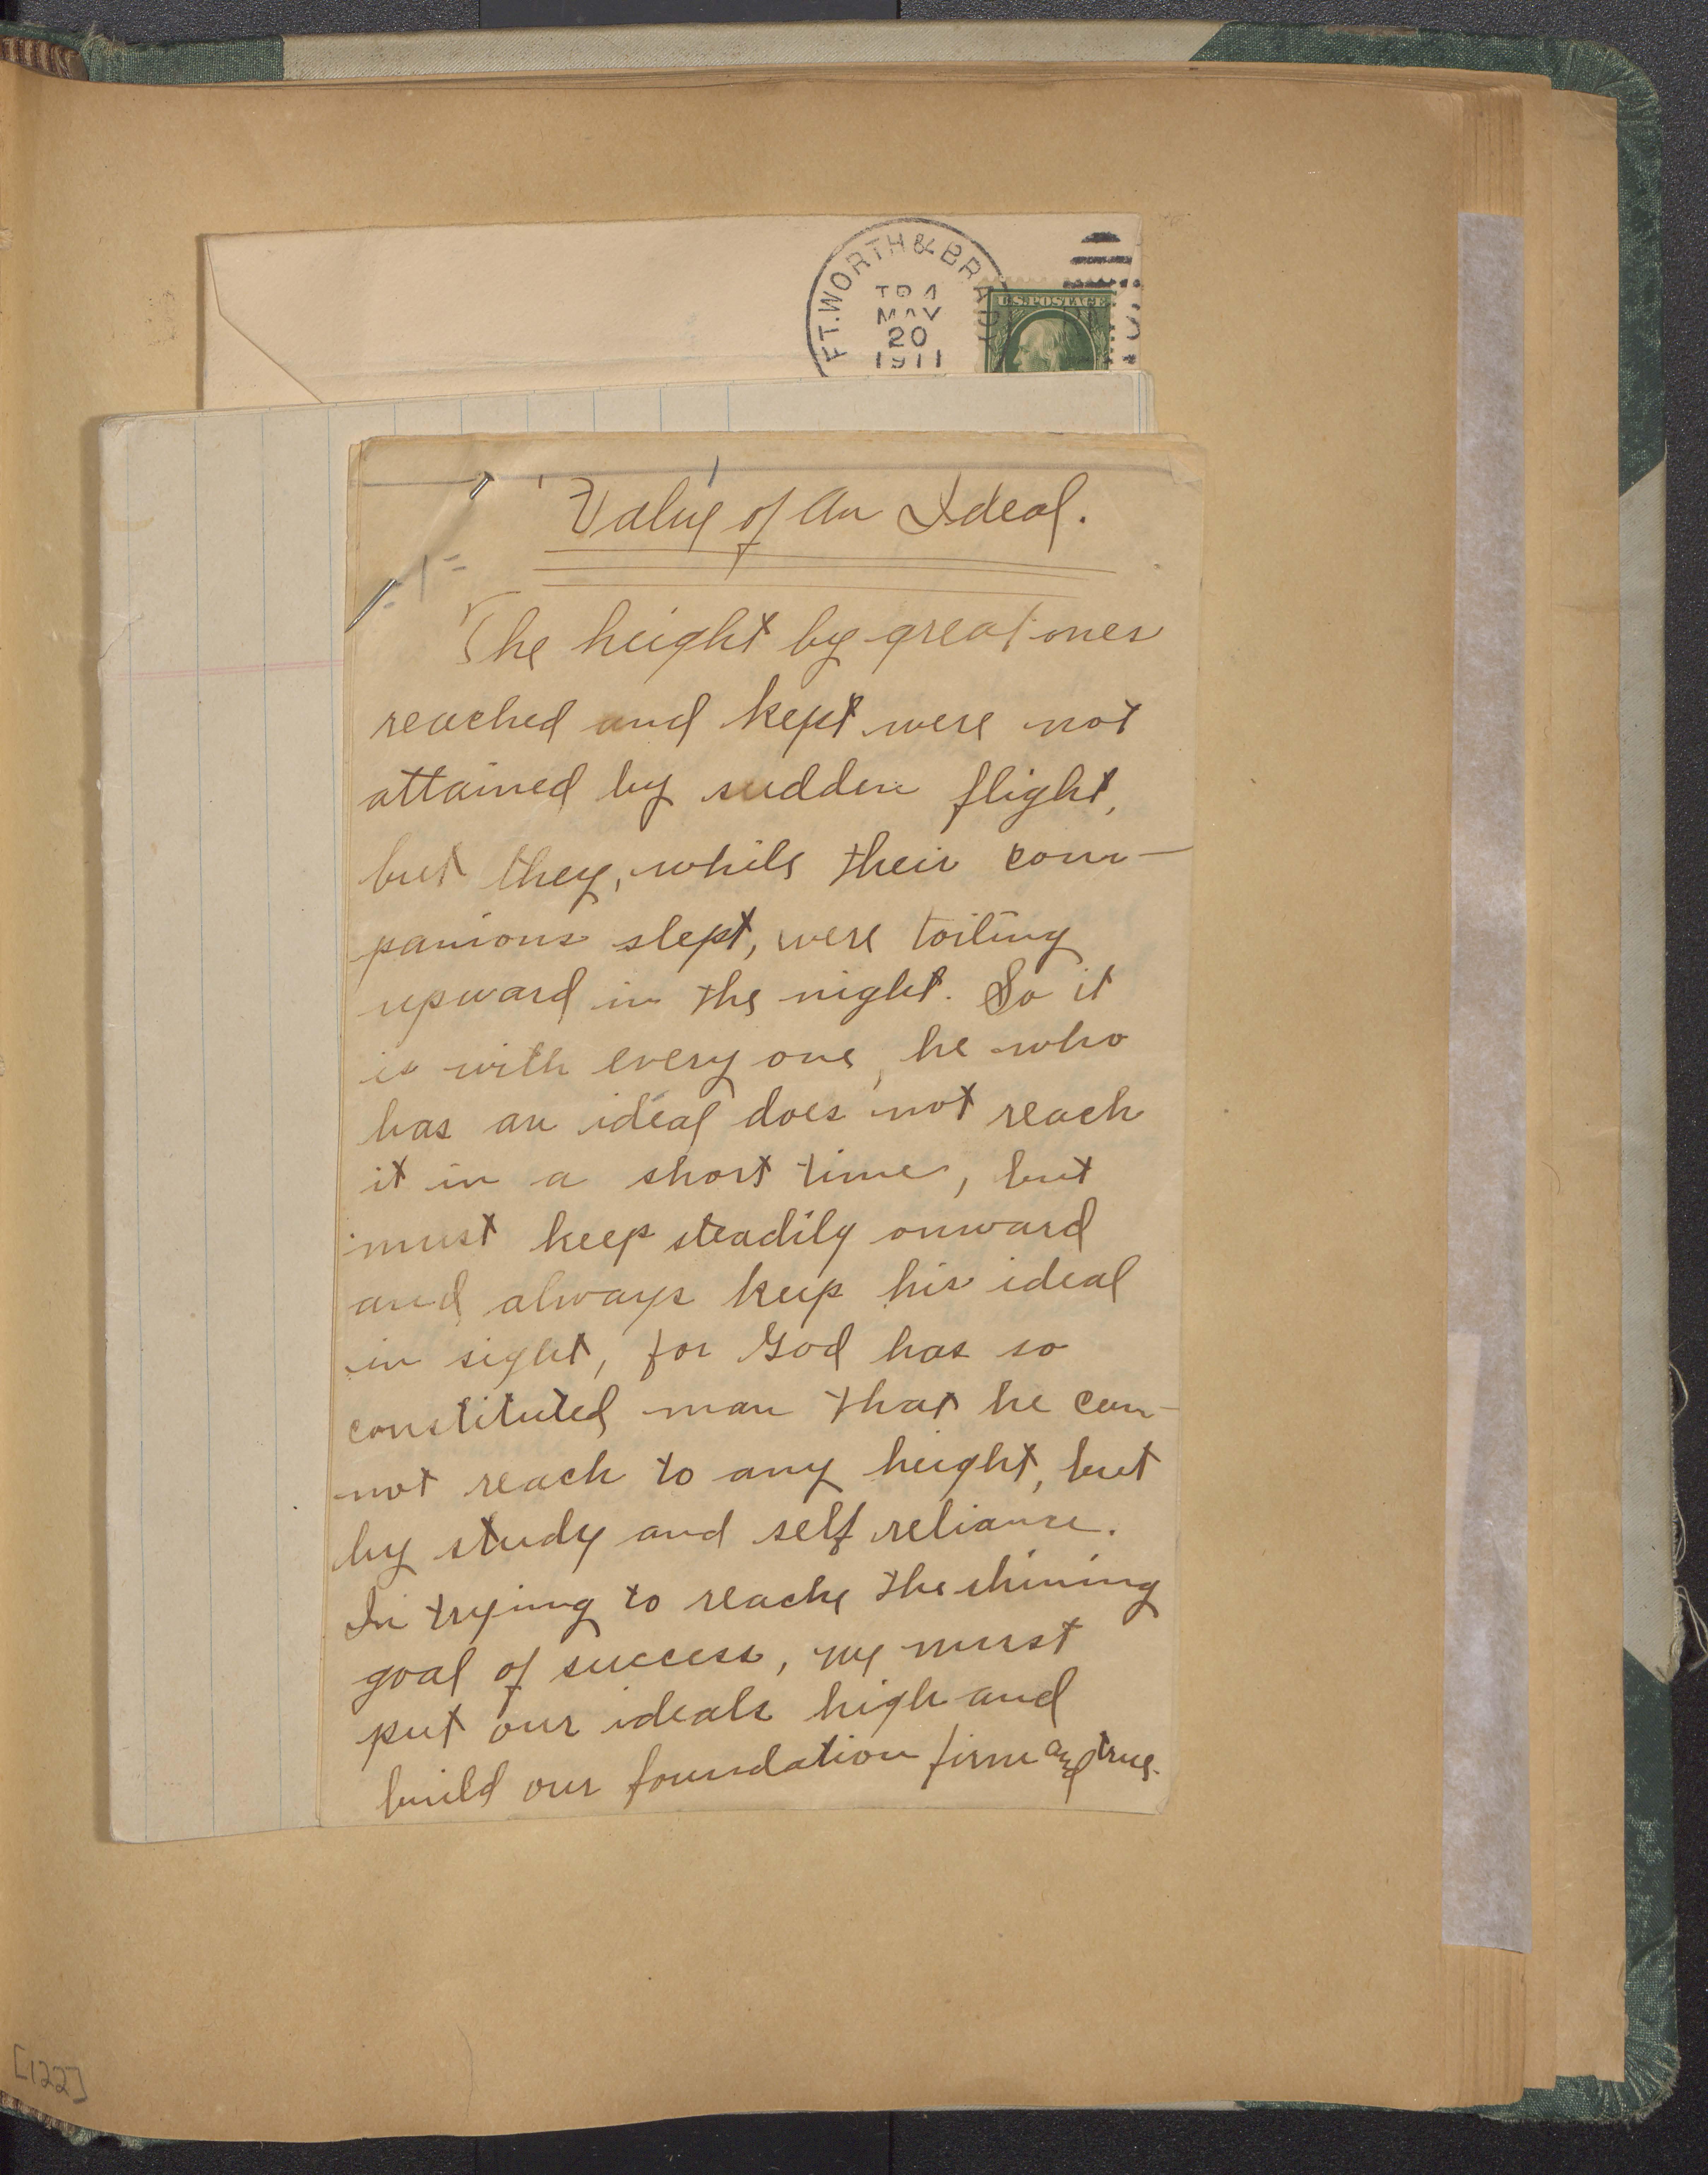 FT. WORTH & BRA
MAY
20
1911
U.S. POSTAGE
Value of an Ideal.
-1-
The height by great ones
reached and kept were not
attained by sudden flight,
but they, while their com-
panions slept, were toiling
upward in the night. So it
is with every one, he who
has an ideal does not reach
it in a short time, but
must keep steadily onward
and always keep his ideal
in sight, for God has so
constituted man that he can-
not reach to any height, but
by study and self reliance.
In trying to reach the shining
goal of success, we must
put our ideals high and
build our foundation firm and true.
[122]